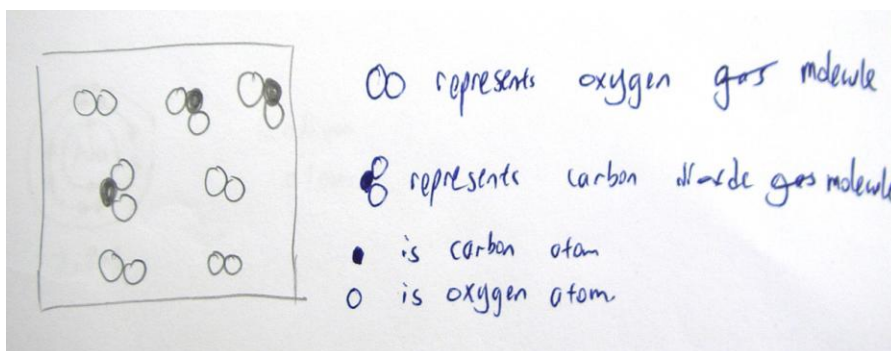 represents oxygen gas molecule
represents carbon dioxide gas molecule
is carbon atom
is oxygen atom.